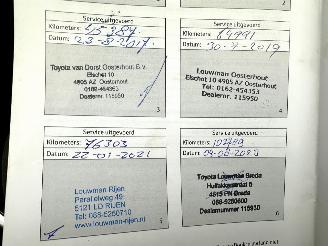 Service uitgevoerd
Kilometers: 45 387
Datum: 23-8-2017
Toyota van Dorst Oosterhout B.V.
Elschot 10
4905 AZ Oosterhout
0162-454353
Dealernr. 115950
3
Service uitgevoerd
Kilometers: 64991
Datum: 30-7-2019
Louwman Oosterhout
Elschot 10 4905 AZ Oosterhout
Tel: 0162-454353
Dealernr. 115950
4
Service uitgevoerd
Kilometers: 76303
Datum: 22-01-2021
Louwman Rijen
Parallelweg 49
5121 LD RIJEN
Tel: 088-5250710
www.louwman-rijen.nl
5
Service uitgevoerd
Kilometers:
Datum:
Toyota Louwman Breda
4815 PN Breda
088-5250600
Dealernummer 115930
6